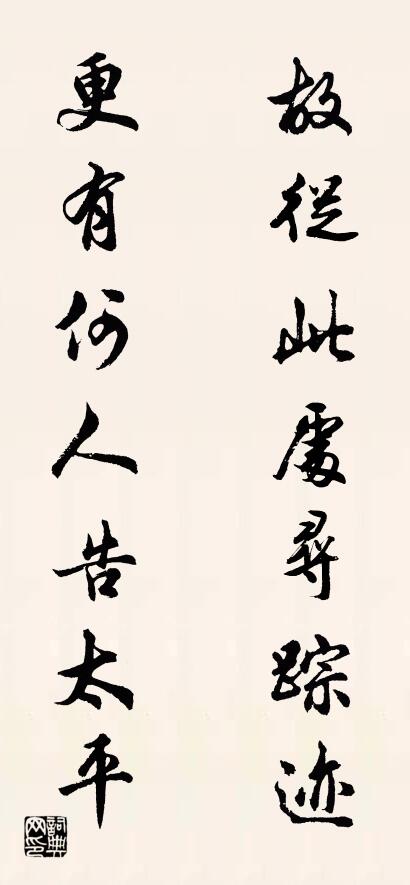 故從此處尋踪迹
更有何人告太平
詞典网印